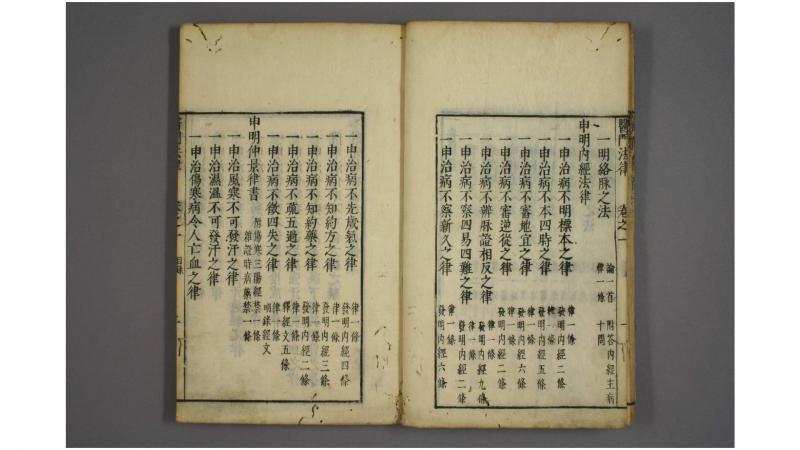 醫門法律 卷之一
一明絡脉之法 論一首 附答內經主病
律一條 十問
申明內經法律
一申治病不明標本之律 律一條
發明內經二條
一申治病不本四時之律 律一條
發明內經五條
一申治病不審地宜之律 律一條
發明內經六條
一申治病不審逆從之律 律一條
發明內經二條
一申治病不辨脉證相反之律 律一條
發明內經九條
一申治病不察四易四難之律 律一條
發明內經二條
一申治病不察新久之律 律一條
發明內經六條
一申治病不先歲氣之律 律一條
發明內經四條
一申治病不知約方之律 律一條
發明內經三條
一申治病不知約藥之律 律一條
發明內經二條
一申治病不疏五過之律 律一條
釋經文五條
一申治病不徵四失之律 律一條
明錄經文
申明仲景律書 附傷寒三陽經禁一條
雜證時病藥禁一條
一申治風寒不可發汗之律
一申治濕溫不可發汗之律
一申治傷寒病令人亡血之律